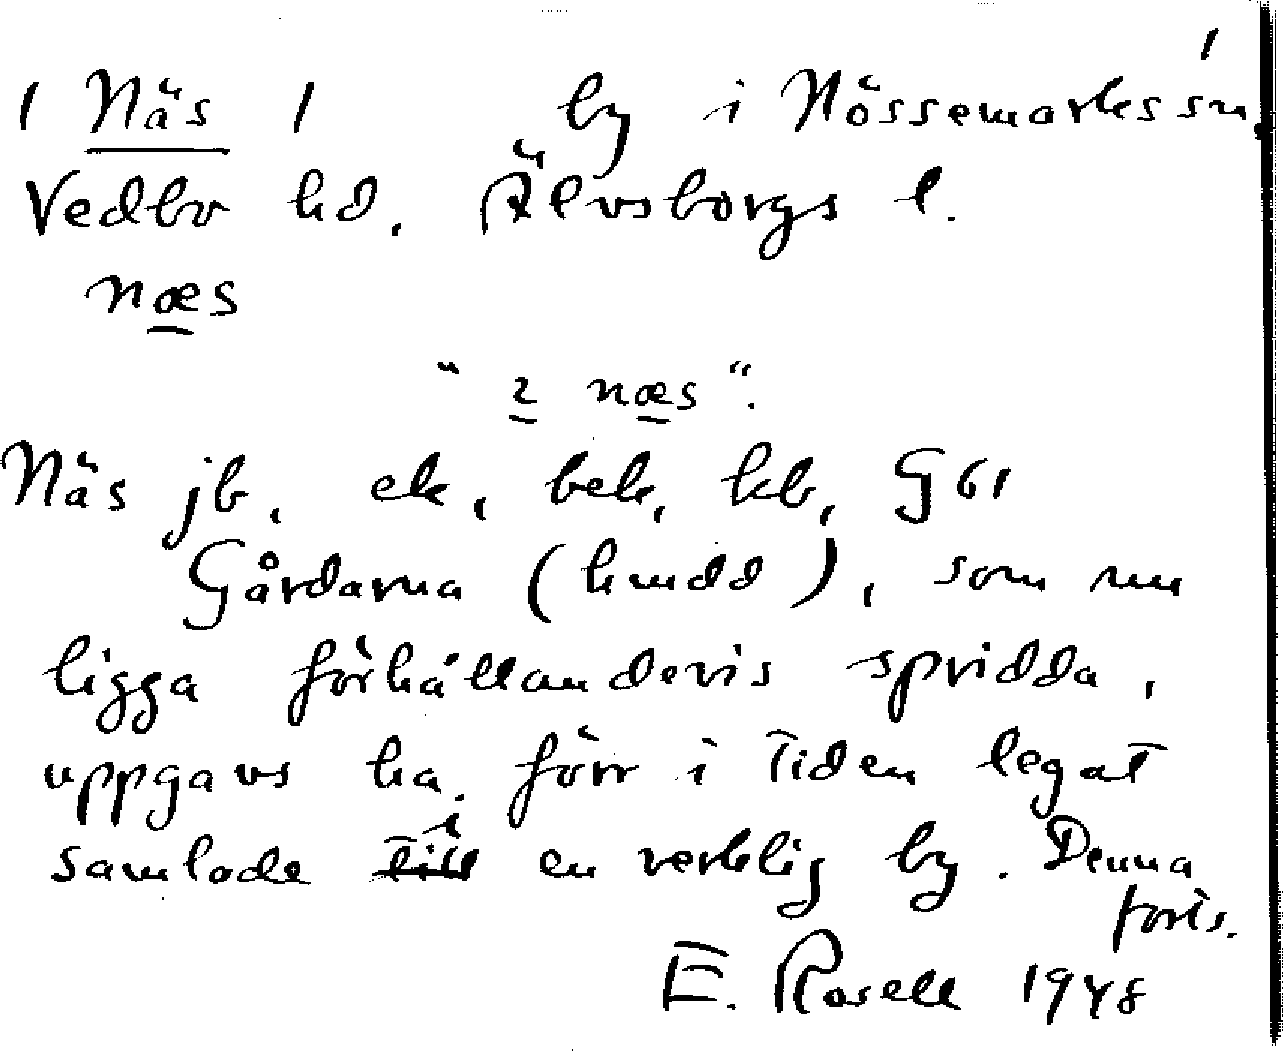 1
1 Näs 1 by i Nössemarks sn.
Vedbo hd. Älvsborgs l.
næs
"2 næs".
Näs jb, ek, bek, kb, G 61
Gårdarna (hmdd), som nu
ligga förhållandevis spridda,
uppgavs ha förr i tiden legat
samlade till i en verklig by. Denna
forts.
E. Rosell 1948